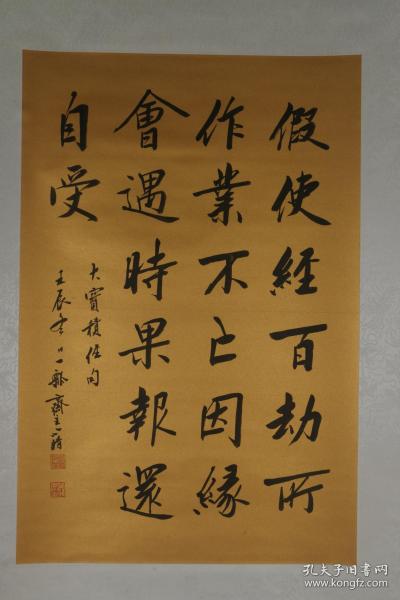 假使經百劫所
作業不亡因緣
會遇時果報還
自受
大寶積經句
壬辰 一瓢齋主
孔夫子旧书网
www.kongfz.com